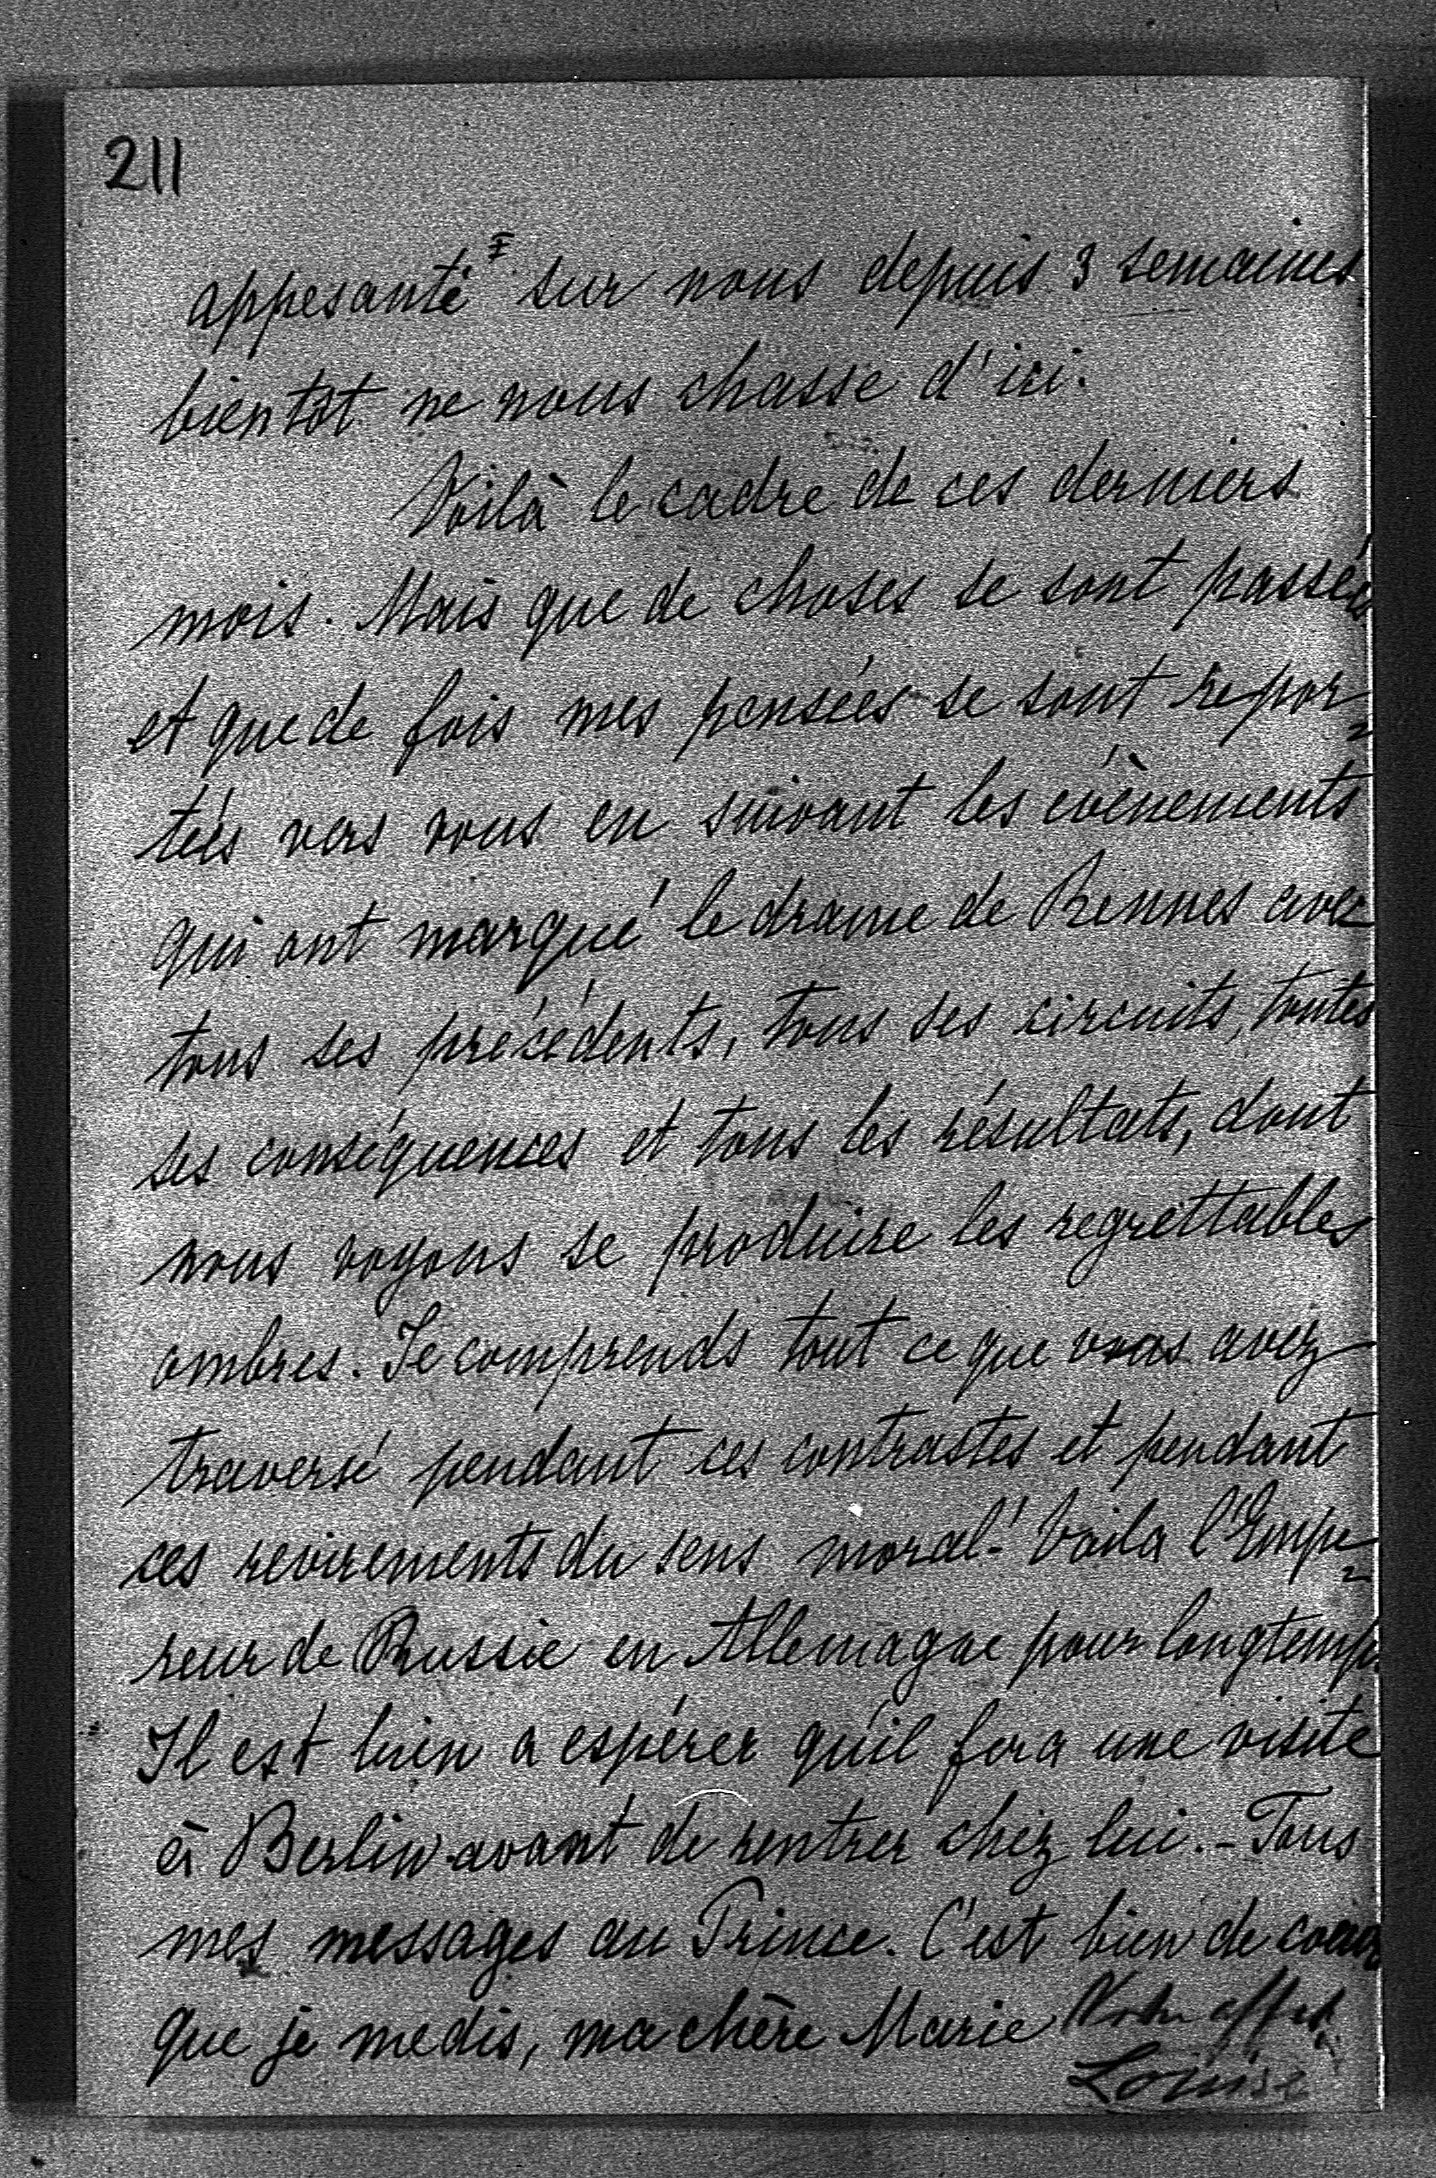 211
appesanté sur nous depuis 3 semaines
bientôt ne nous chasse d'ici.
Voilà le cadre de ces derniers
mois. Mais que de choses se sont passées
et que de fois mes pensées se sont repor=
tées vers vous en suivant les evènements
qui ont marqué le drame de Rennes avec
tous ses précédents, tous ses circuits, toutes
ses conséquences et tous les résultats, dont
nous voyons se produire les regrettables
ombres. Je comprends tout ce que vous avez
traversé pendant ces contrastes et pendant
ces revirements du sens moral! Voila l'Empe=
reur de Russie en Allemagne pour longtemps.
Il est bien a espérer qu'il fera une visite
à Berlin avant de rentrer chez lui. - Tous
mes messages au Prince. C'est bien de coeur
que je me dis, ma chère Marie Votre affet.
Louise